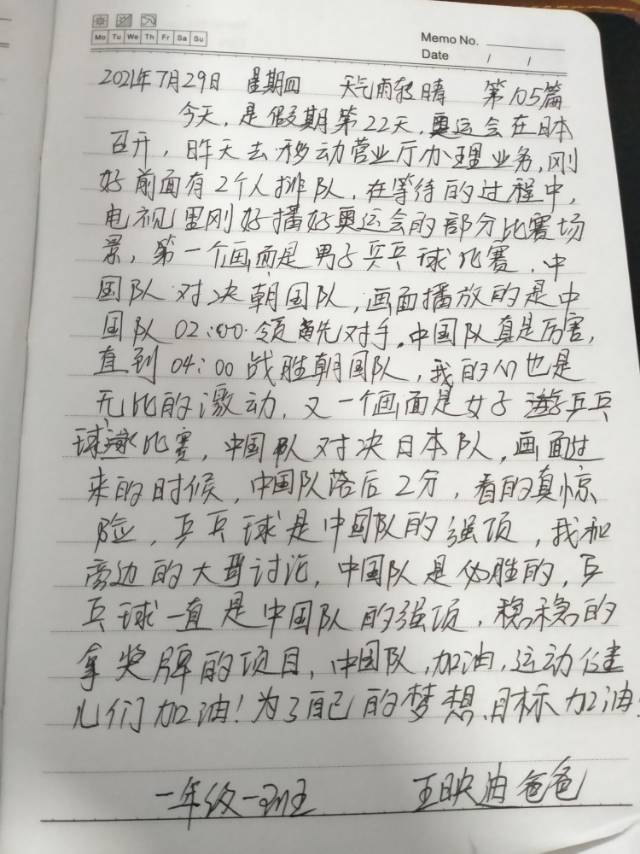 Memo No.
Mo Tu We Th Fr Sa Su
Date / /
2021年7月29日 星期四 天气雨转晴 第105篇
今天,是假期第22天,奥运会在日本
召开,昨天去移动营业厅办理业务,刚
好前面有2个人排队,在等待的过程中,
电视里刚好播好奥运会的部分比赛场
景,第一个画面是男子乒乓球比赛,中
国队对决朝国队,画面播放的是中
国队02:00领先对手,中国队真是厉害,
直到04:00战胜朝国队,我的心也是
无比的激动,又一个画面是女子乒乓
球比赛,中国队对决日本队,画面过
来的时候,中国队落后2分,看的真惊
险,乒乓球是中国队的强项,我和
旁边的大哥讨论,中国队是必胜的,乒
乓球一直是中国队的强项,稳稳的
拿奖牌的项目,中国队,加油,运动健
儿们加油!为了自己的梦想、目标加油!
一年级一班 王映油爸爸